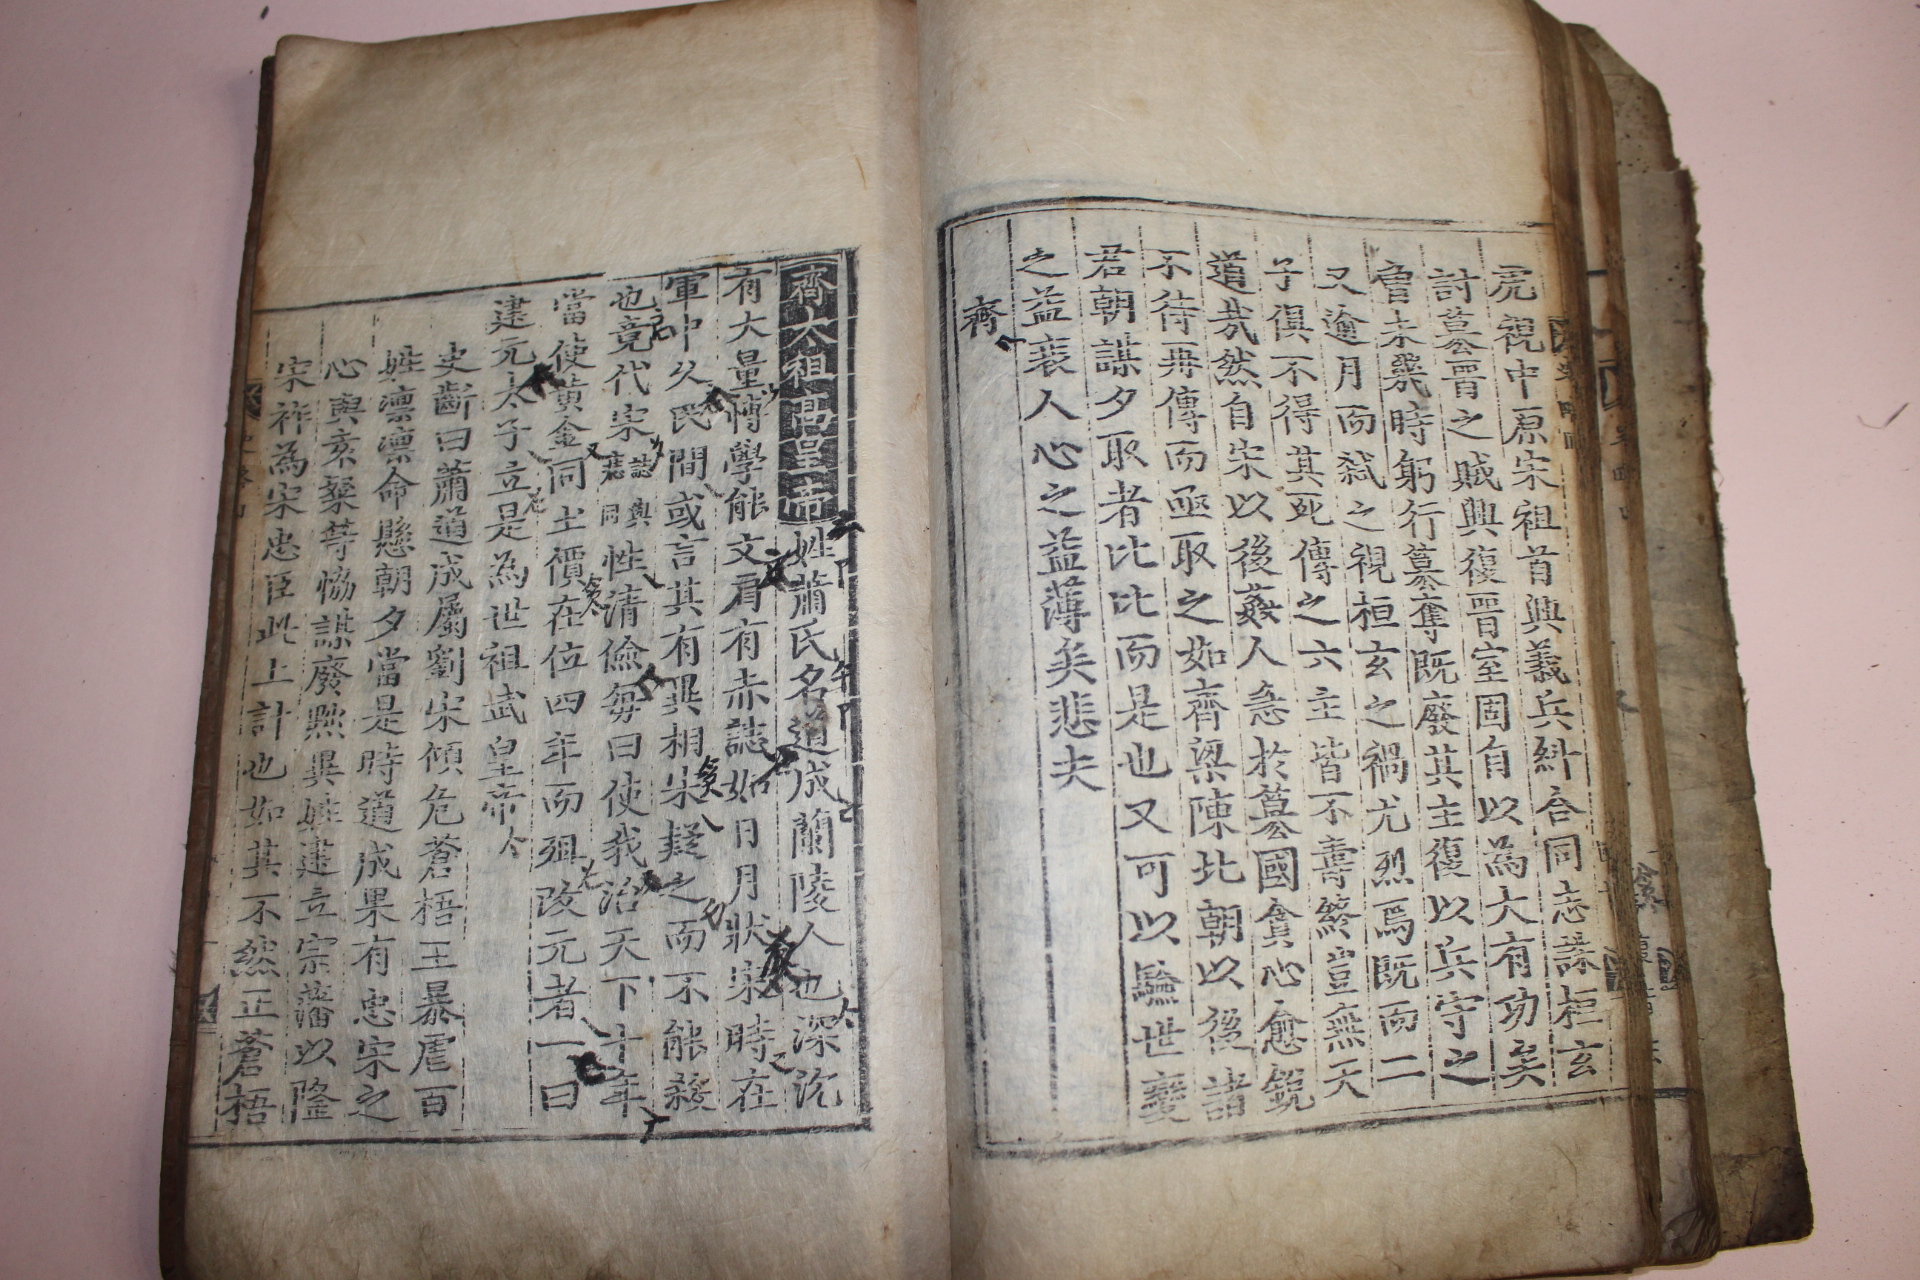 虎視中原宋祖首興義兵糾合同志誅桓玄
討簒晋之賊興復晋室固自以為大有功矣
曾未幾時躬行簒奪既廢其主復以兵守之
又逾月而弑之視桓玄之禍尤烈焉既而二
子俱不得其死傳之六主皆不壽終豈無天
道㢤然自宋以後姦人急於簒國貪心愈銳
不待再傳而亟取之如齊梁陳北朝以後諸
君朝謀夕取者比比而是也又可以驗世變
之益衰人心之益薄矣悲夫
齊
齊太祖高皇帝姓蕭氏名道成蘭陵人也深沉
有大量博學能文肩有赤誌如日月狀宋時在
軍中久民間或言其有異相宋疑之而不能殺
也竟代宋痣誌與同性清儉每曰使我治天下十年
當使黃金同土價在位四年而殂改元者一曰
建元太子立是為世祖武皇帝
史斷曰蕭道成屬劉宋傾危蒼梧王暴虐百
姓凛凛命懸朝夕當是時道成果有忠宋之
心與袁粲等恊謀廢㷀異姓建立宗藩以隆
宋祚為宋忠臣此上計也如其不然正蒼梧